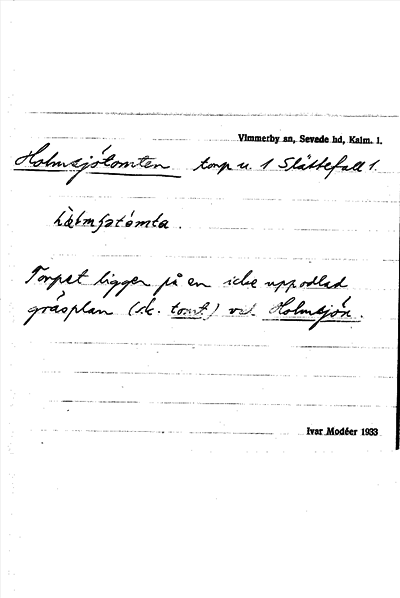 Vimmerby sn, Sevede hd, Kalm. l.
Holmsjötomten torp u. 1 Slättefall 1.
Torpet ligger på en icke uppodlad
gräsplan (s.k. tomt) vid Holmsjön.
Ivar Modéer 1933